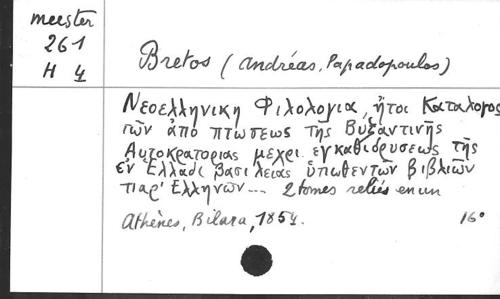 meester
261
H 4
Bretos (Andréas, Papadopoulos)
Νεοελληνικη Φιλολογια, ἤτοι Καταλογος
τῶν ἀπὸ πτωσεως τῆς Βυζαντινῆς
Αυτοκρατοριας μεχρι ἐγκαθιδρυσεως τῆς
ἐν Ἑλλαδι βασιλειας τυπωθεντῶν βιβλιῶν
παρ' Ἑλληνων... 2 tomes reliés en un
Athènes, Bilara, 1854. 16°